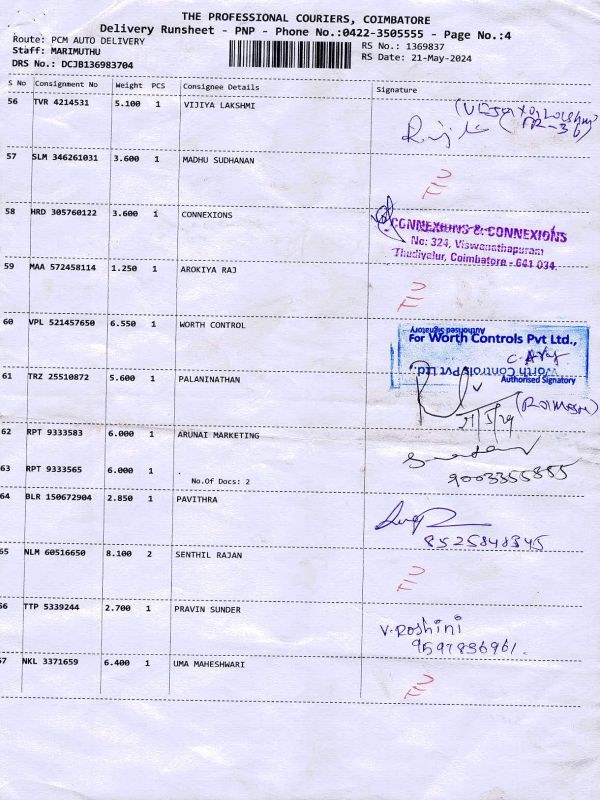 THE PROFESSIONAL COURIERS, COIMBATORE
Delivery Runsheet - PNP - Phone No.:0422-3505555 - Page No.:4
Route: PCM AUTO DELIVERY
RS No.: 1369837
Staff: MARIMUTHU
RS Date: 21-May-2024
DRS No.: DCJB136983704
S No Consignment No Weight PCS Consignee Details Signature
56 TVR 4214531 5.100 1 VIJIYA LAKSHMI
57 SLM 346261031 3.600 1 MADHU SUDHANAN
58 HRD 305760122 3.600 1 CONNEXIONS
CONNEXIONS & CONNEXIONS
No: 324, Viswanathapuram
Thudiyalur, Coimbatore - 641 034.
59 MAA 572458114 1.250 1 AROKIYA RAJ
60 VPL 521457650 6.550 1 WORTH CONTROL
Authorised Signatory
For Worth Controls Pvt Ltd.,
Worth Controls Pvt Ltd.,
Authorised Signatory
61 TRZ 25510872 5.600 1 PALANINATHAN
21/5/24
62 RPT 9333583 6.000 1 ARUNAI MARKETING
63 RPT 9333565 6.000 1 .
No.Of Docs: 2
9003355855
64 BLR 150672904 2.850 1 PAVITHRA
8525848345
65 NLM 60516650 8.100 2 SENTHIL RAJAN
66 TTP 5339244 2.700 1 PRAVIN SUNDER
V. Roshini
9597836961.
67 NKL 3371659 6.400 1 UMA MAHESHWARI